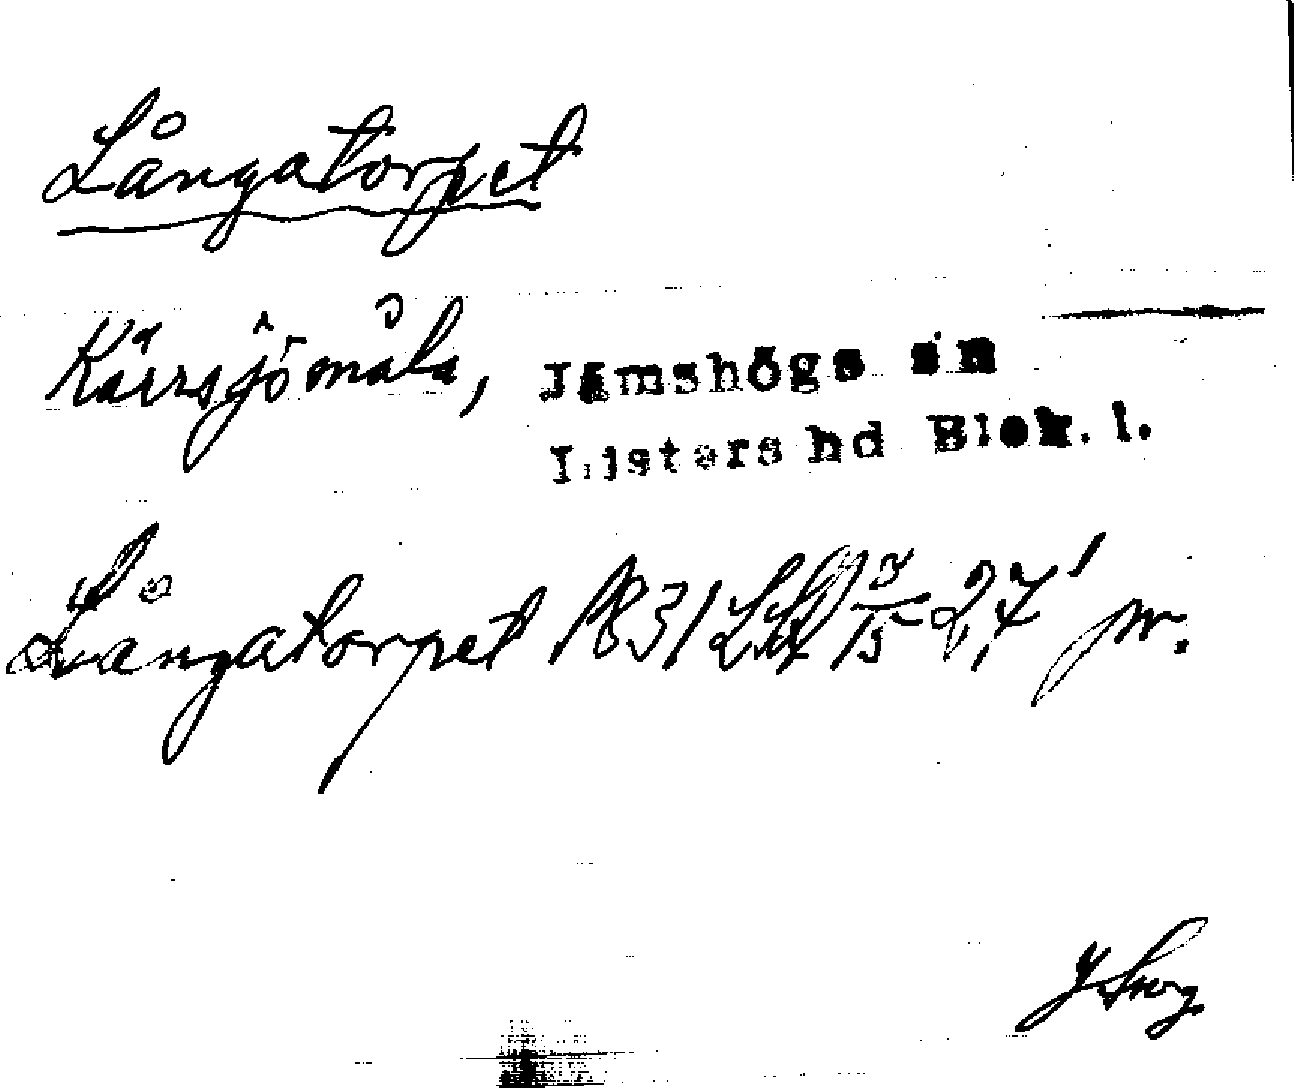 Långatorpet
Kärrsjömåla, Jämshögs sn
Listers hd Blek. l.
Långatorpet 1831 2,7 pr.